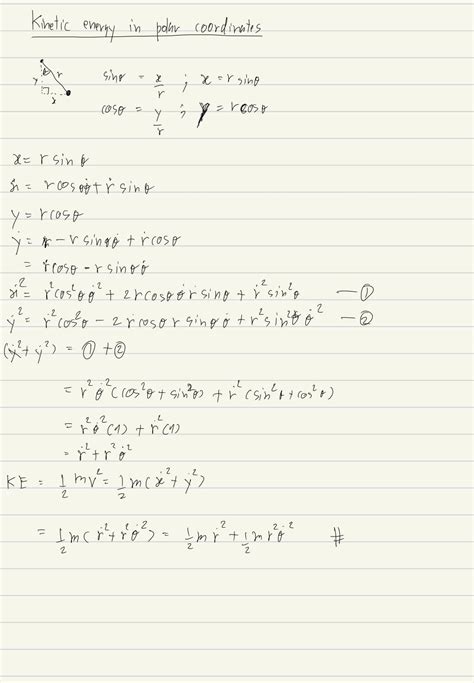 Kinetic energy in polar coordinates
θ r
y
x
sinθ = x/r ; x = r sinθ
cosθ = y/r ; y = r cosθ
x = r sinθ
ẋ = r cosθ θ̇ + ṙ sinθ
y = r cosθ
ẏ = -r sinθ θ̇ + ṙ cosθ
= ṙ cosθ - r sinθ θ̇
ẋ² = r² cos²θ θ̇² + 2r cosθ θ̇ ṙ sinθ + ṙ² sin²θ — ①
ẏ² = ṙ² cos²θ - 2ṙ cosθ r sinθ θ̇ + r² sin²θ θ̇² — ②
(ẋ² + ẏ²) = ① + ②
= r² θ̇² (cos²θ + sin²θ) + ṙ² (sin²θ + cos²θ)
= r² θ̇² (1) + ṙ² (1)
= ṙ² + r² θ̇²
KE = 1/2 mv² = 1/2 m(ẋ² + ẏ²)
= 1/2 m(ṙ² + r² θ̇²) = 1/2 m ṙ² + 1/2 m r² θ̇² #